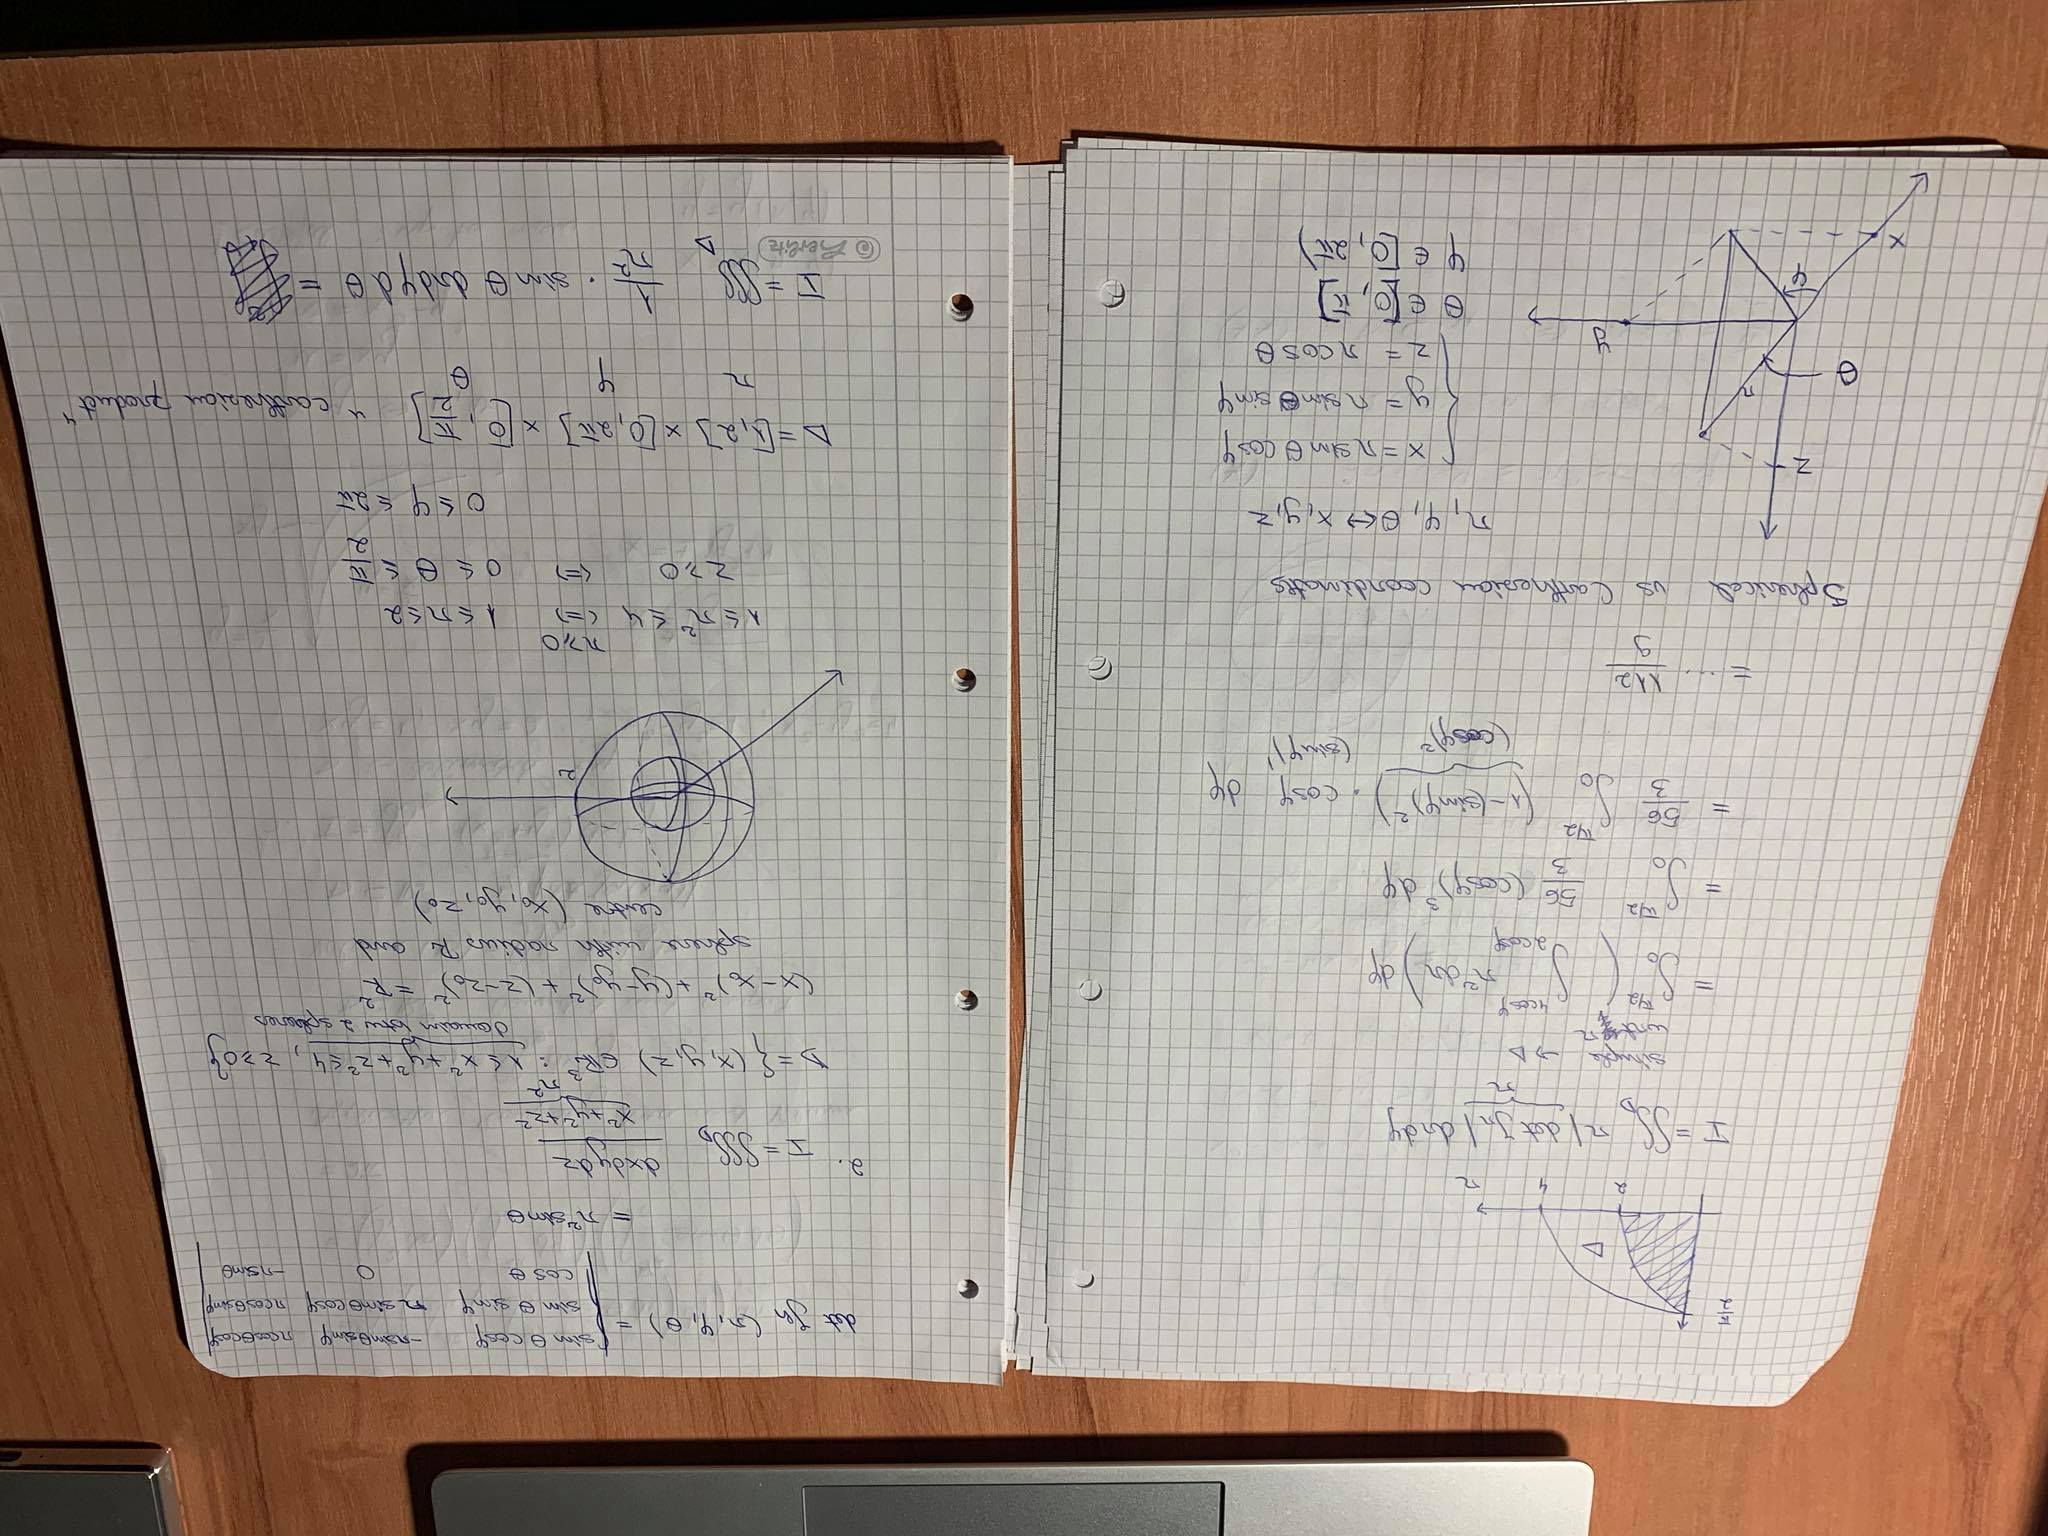 π/2
Δ
2 4 r
I = ∬_D r |det J_r| dr dφ
r
simple → Δ
wrt r
= ∫_0^{π/2} ( ∫_{2cosφ}^{4cosφ} r² dr ) dφ
= ∫_0^{π/2} 56/3 (cosφ)³ dφ
= 56/3 ∫_0^{π/2} (1-(sinφ)²) · cosφ dφ
(cosφ)² (sinφ)'
= ... 112/9
Spherical vs Carthesian coordinates
r, φ, θ ↔ x, y, z
z
r
θ
y
φ
x
x = r sin θ cos φ
y = r sin θ sin φ
z = r cos θ
θ ∈ [0, π]
φ ∈ [0, 2π)
det J_h (r, φ, θ) = | sin θ cos φ -r sin θ sin φ r cos θ cos φ
sin θ sin φ r sin θ cos φ r cos θ sin φ
cos θ 0 -r sin θ |
= r² sin θ
2. I = ∭_D dxdydz / x²+y²+z²
r²
D = { (x, y, z) ∈ R³ : 1 ≤ x²+y²+z² ≤ 4, z ≥ 0 }
domain btw 2 spheres
(x-x₀)² + (y-y₀)² + (z-z₀)² = R²
sphere with radius R and
centre (x₀, y₀, z₀)
2
1 ≤ r² ≤ 4 r ≥ 0 <=> 1 ≤ r ≤ 2
z ≥ 0 <=> 0 ≤ θ ≤ π/2
0 ≤ φ ≤ 2π
Δ = [1, 2] × [0, 2π] × [0, π/2] „carthesian product"
r φ θ
I = ∭_Δ 1/r² · sin θ dr dφ d θ =
© Herlitz